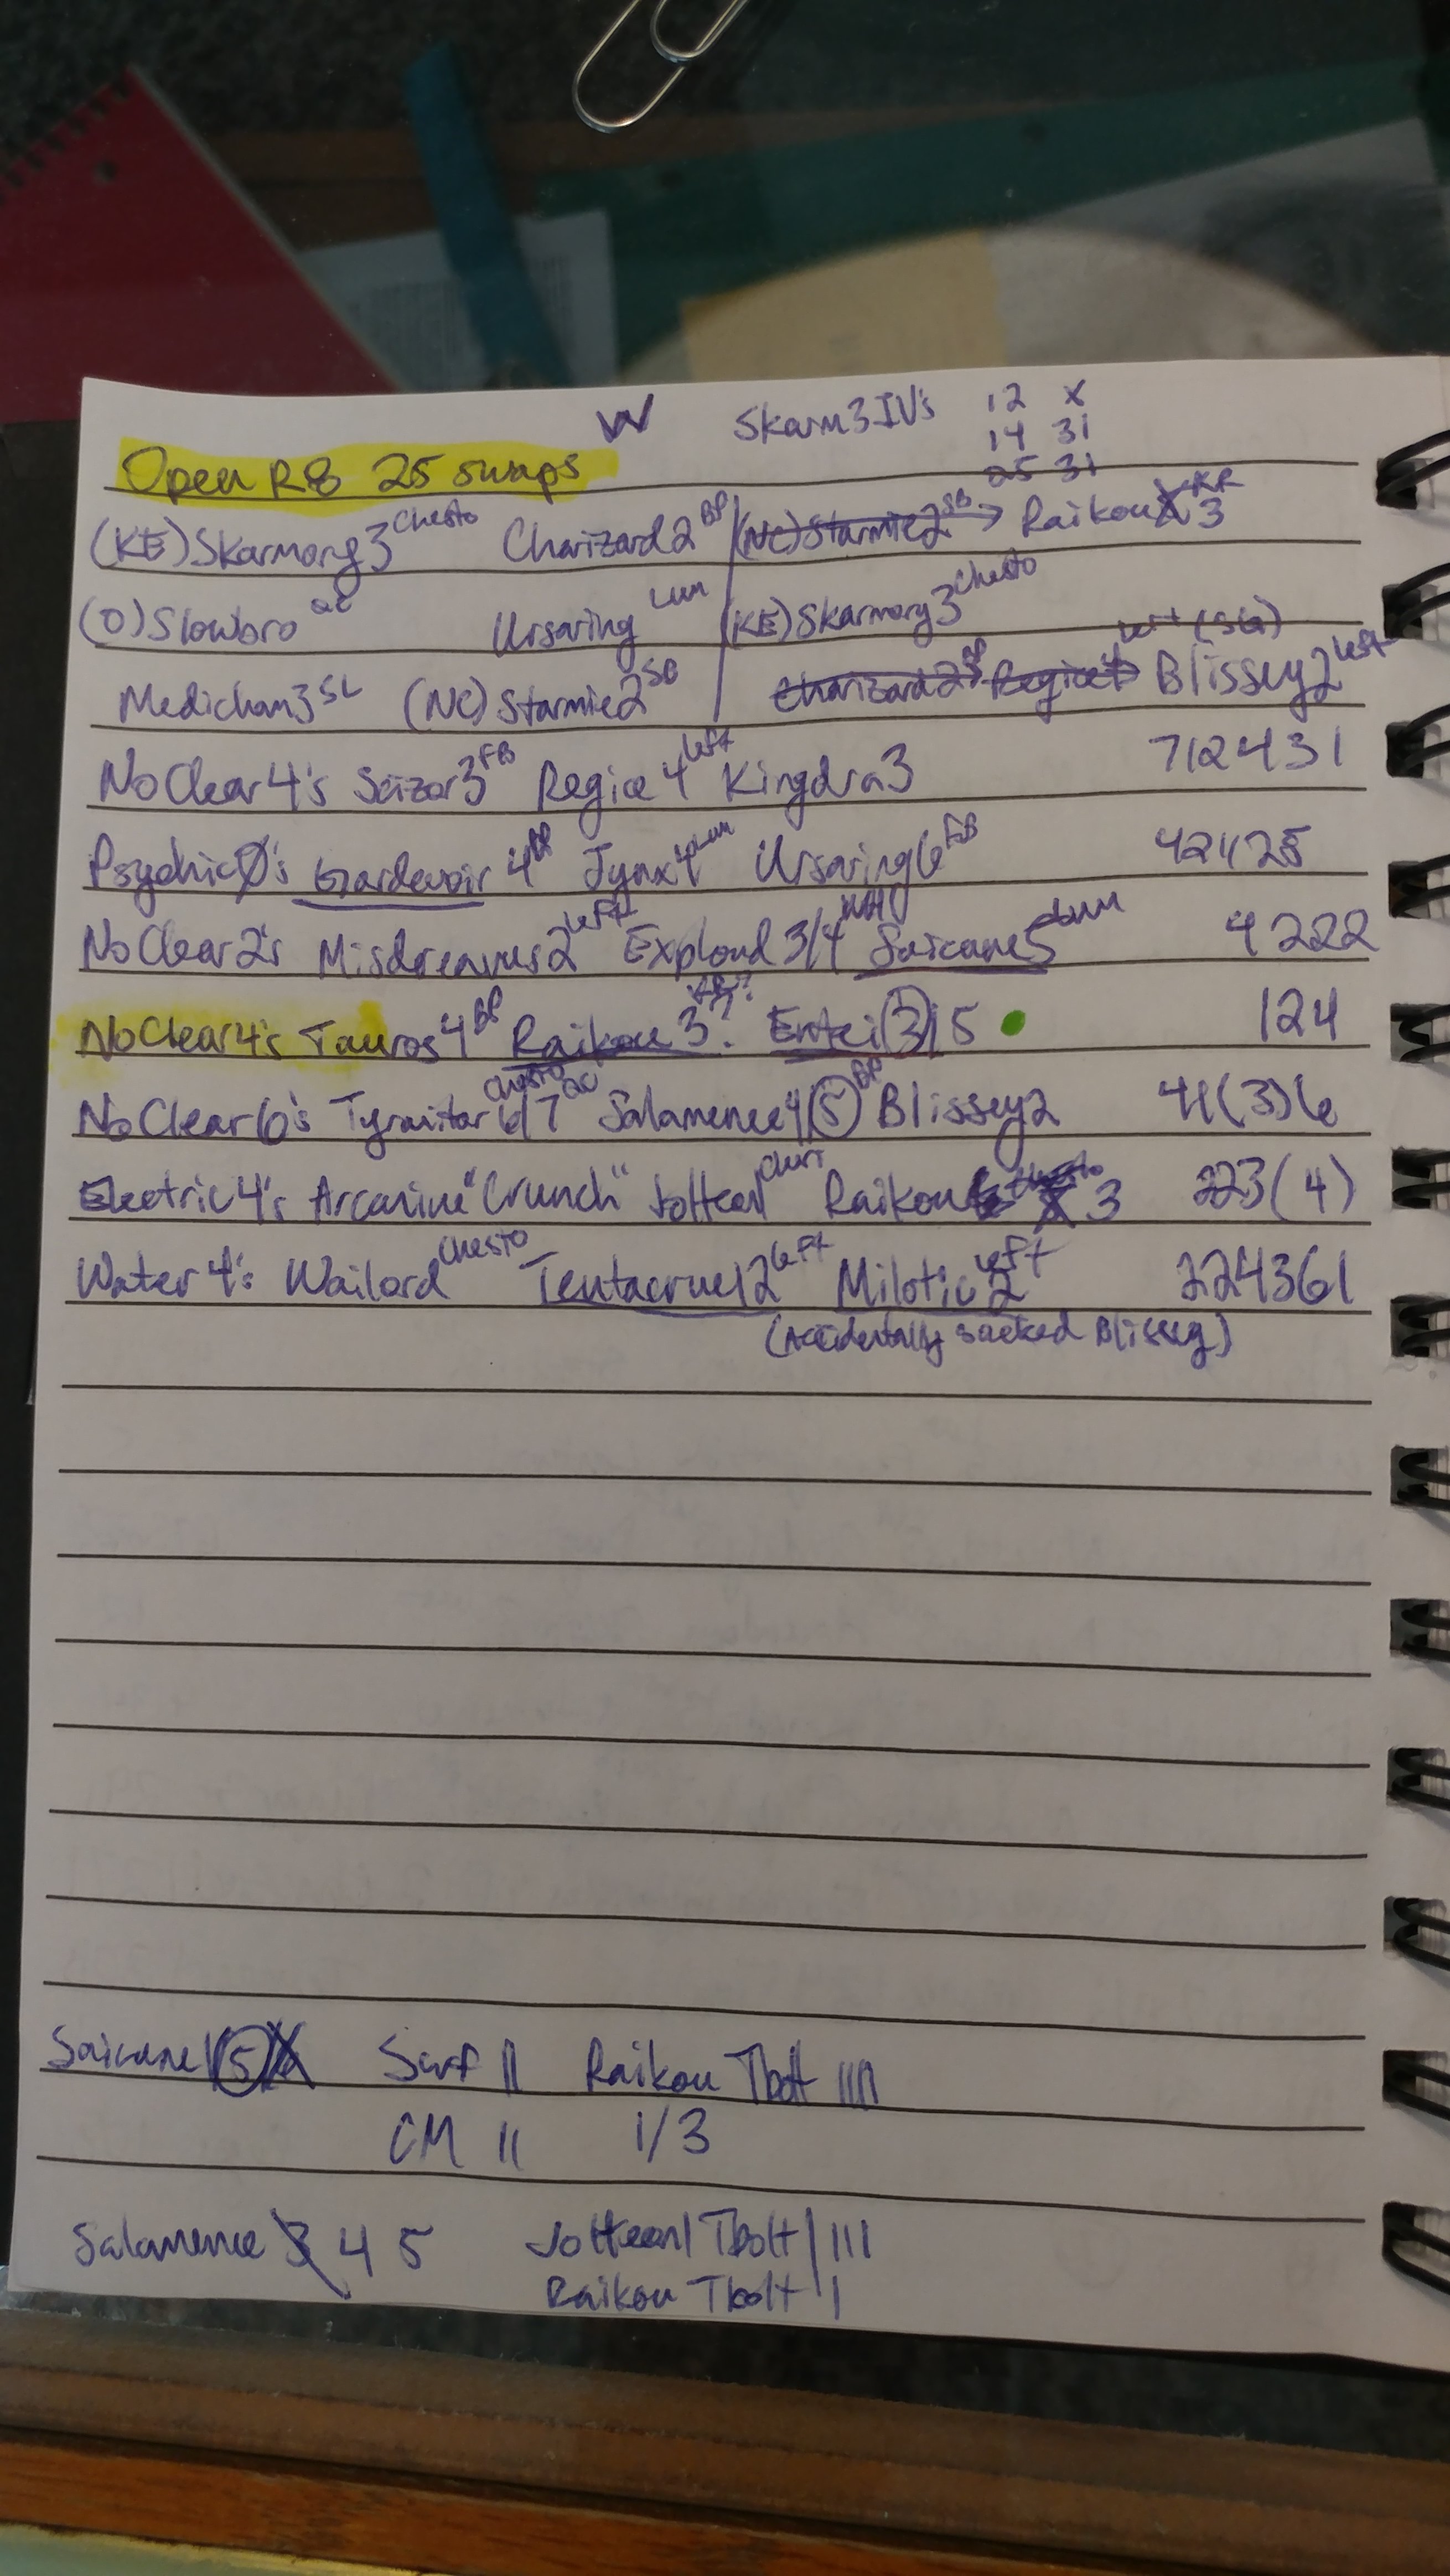 W Skarm3 IV's 12 X
14 31
25 31
Open R8 25 swaps
(KE)Skarmory3 Chesto Charizard2 BP (NC)Starmie2 SB → Raikou 3 KR
(O)Slowbro QC Ursaring Lum (KE)Skarmory3 Chesto
Medicham3 SL (NC)Starmie2 SB Charizard2 BP Regice4 Left (SG) Blissey2 Left
NoClear4's Scizor3 FB Regice4 Left Kingdra3 712431
Psychic0's Gardevoir4 BP Jynx4 Lum Ursaring6 FB
NoClear2's Misdreavus2 Left Exploud3/4 WH Suicune5 Lum 4222
NoClear4's Tauros4 BP Raikou3? Entei(3)5 124
NoClear6's Tyranitar6/7 Chesto QC Salamence4/5 BP Blissey2 41(3)6
Electric4's Arcanine "Crunch" Jolteon1 Cheri Raikou 3 223(4)
Water4's Wailord Chesto Tentacruel2 Left Milotic2 Left 224361
(Accidentally sacked Blissey)
Suicune 5 Surf || Raikou Tbolt
CM || 1/3
Salamence 3 4 5 Jolteon1 Tbolt | |||
Raikou Tbolt |